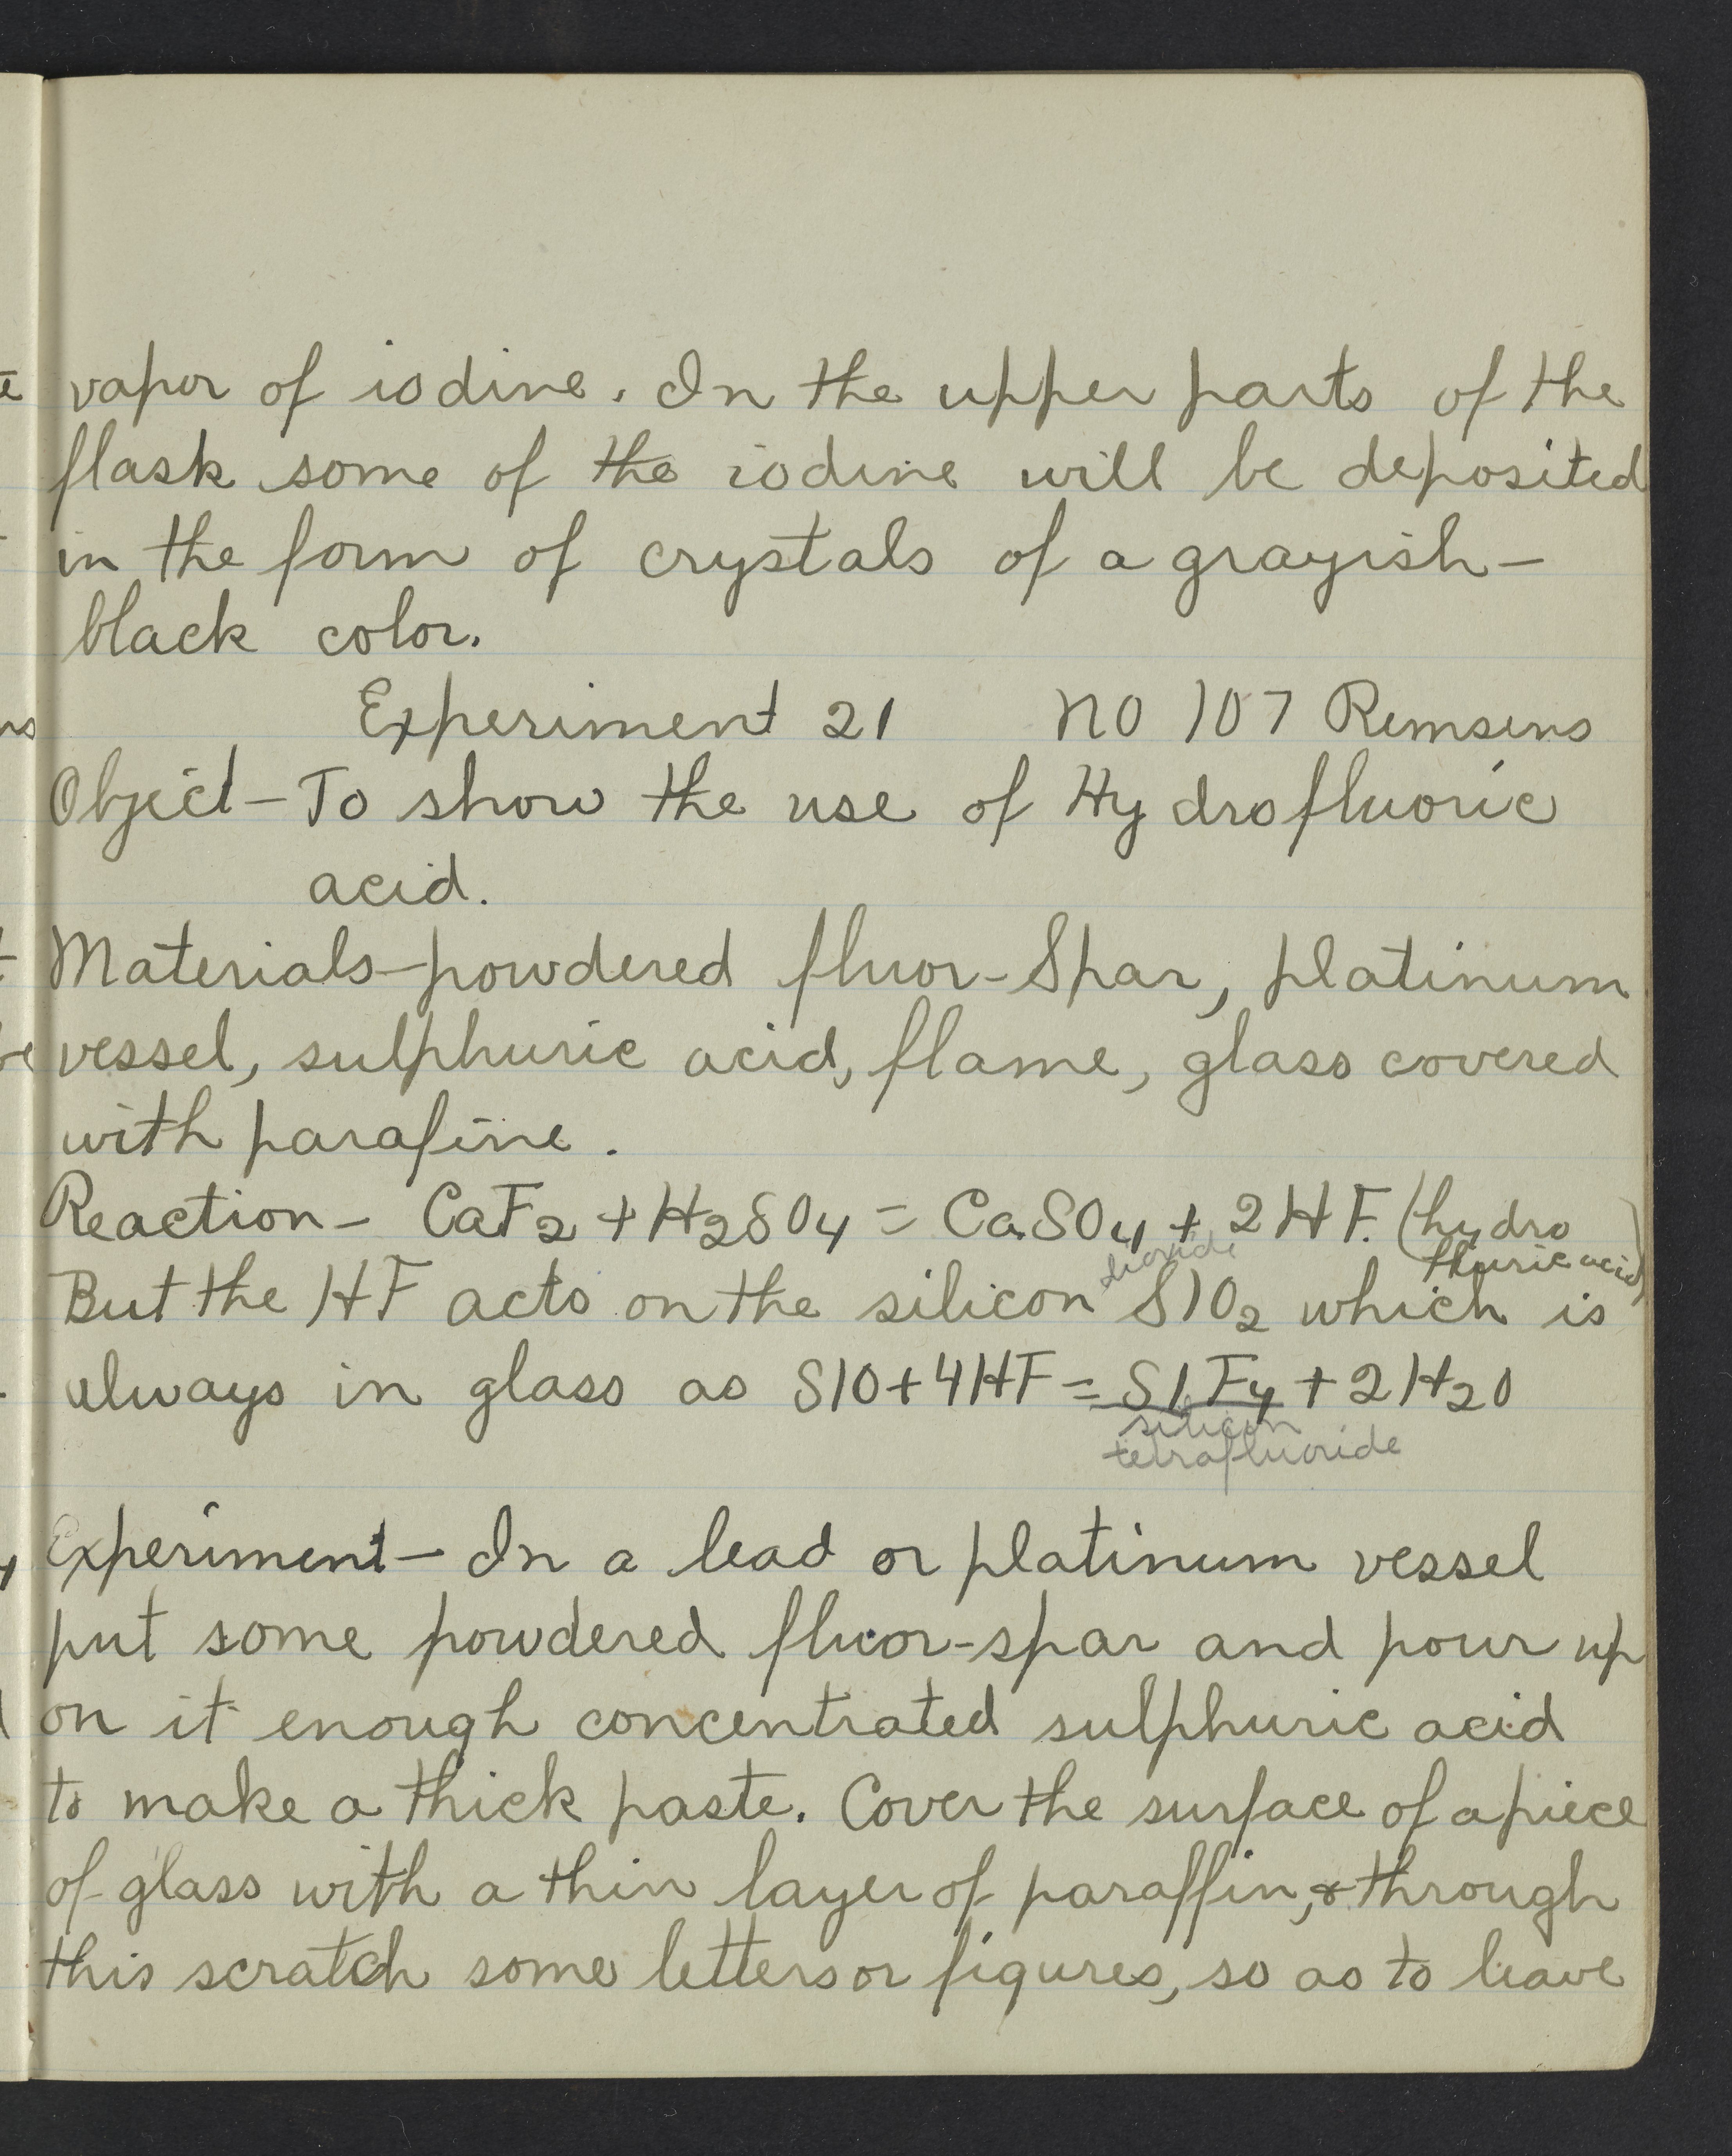 vapor of iodine. In the upper parts of the
flask some of the iodine will be deposited
in the form of crystals of a grayish-
black color.
Experiment 21 No 107 Remsens
Object - To show the use of Hydrofluoric
acid.
Materials - powdered fluor-Spar, platinum
vessel, sulphuric acid, flame, glass covered
with parafine.
Reaction - CaF2 + H2SO4 = CaSO4 + 2HF. (hydro
fluric acid)
dioxide
But the HF acts on the silicon SIO2 which is
always in glass as SIO + 4HF = SIF4 + 2H2O
silicon
tetrafluoride
Experiment - In a lead or platinum vessel
put some powdered fluor-spar and pour up
on it enough concentrated sulphuric acid
to make a thick paste. Cover the surface of a piece
of glass with a thin layer of paraffin, & through
this scratch some letters or figures, so as to leave